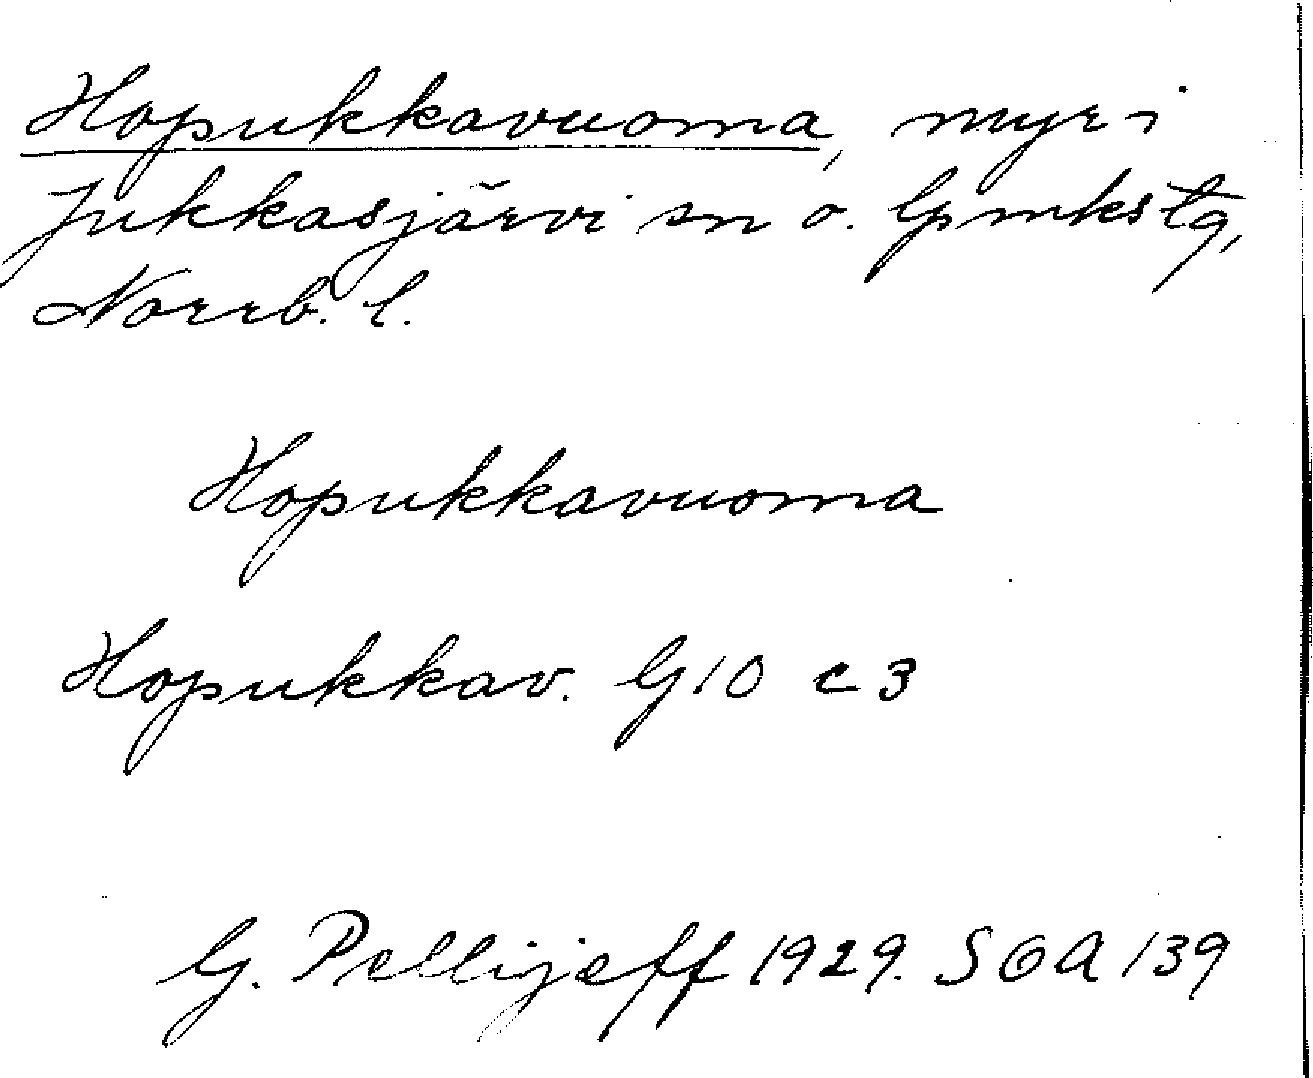 Hopukkavuoma, myr i
Jukkasjärvi sn o. lpmkstg,
Norrb. l.
Hopukkavuoma
Hopukkav. G10 c 3
G. Pellijeff 1929. SOA 139